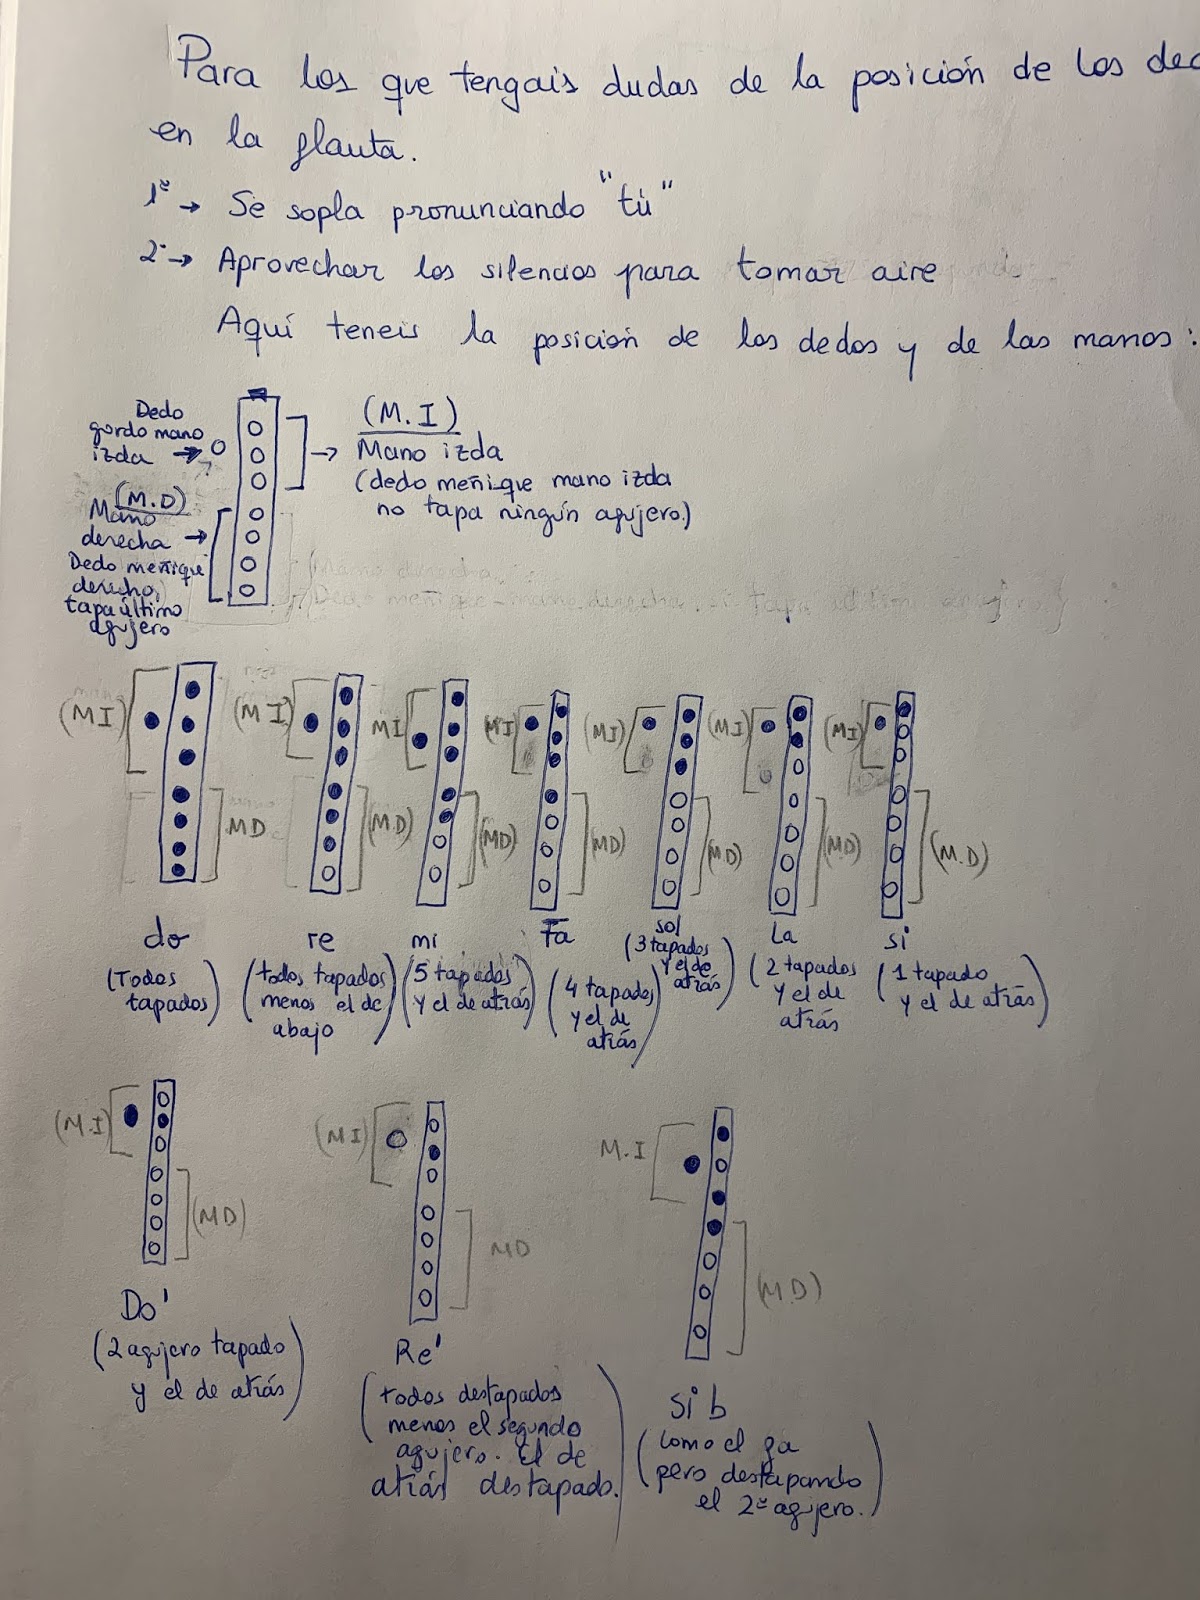 Para los que tengais dudas de la posición de los dec
en la flauta.
1º → Se sopla pronunciando "tú"
2º → Aprovechar los silencios para tomar aire
Aquí teneis la posición de los dedos y de las manos:
Dedo
gordo mano
izda →
(M.I)
Mano izda
(dedo meñique mano izda
no tapa ningún agujero.)
(M.D)
Mano
derecha →
Dedo meñique
derecho,
tapa último
agujero
(MI) (MI) MI (MI) (MI) (MI) (MI)
MD (MD) (MD) (MD) (MD) (MD) (M.D)
do re mi Fa sol La si
(Todos
tapados)
(todos tapados
menos el de
abajo)
(5 tapados
y el de atrás)
(4 tapados
y el de
atrás)
(3 tapados
y el de
atrás)
(2 tapados
y el de
atrás)
(1 tapado
y el de atrás)
(M.I) (MI) M.I
(MD) MD (M.D)
Do'
(2 agujero tapado
y el de atrás)
Re'
(todos destapados
menos el segundo
agujero. El de
atrás destapado.)
Si b
(como el fa
pero destapando
el 2º agujero.)